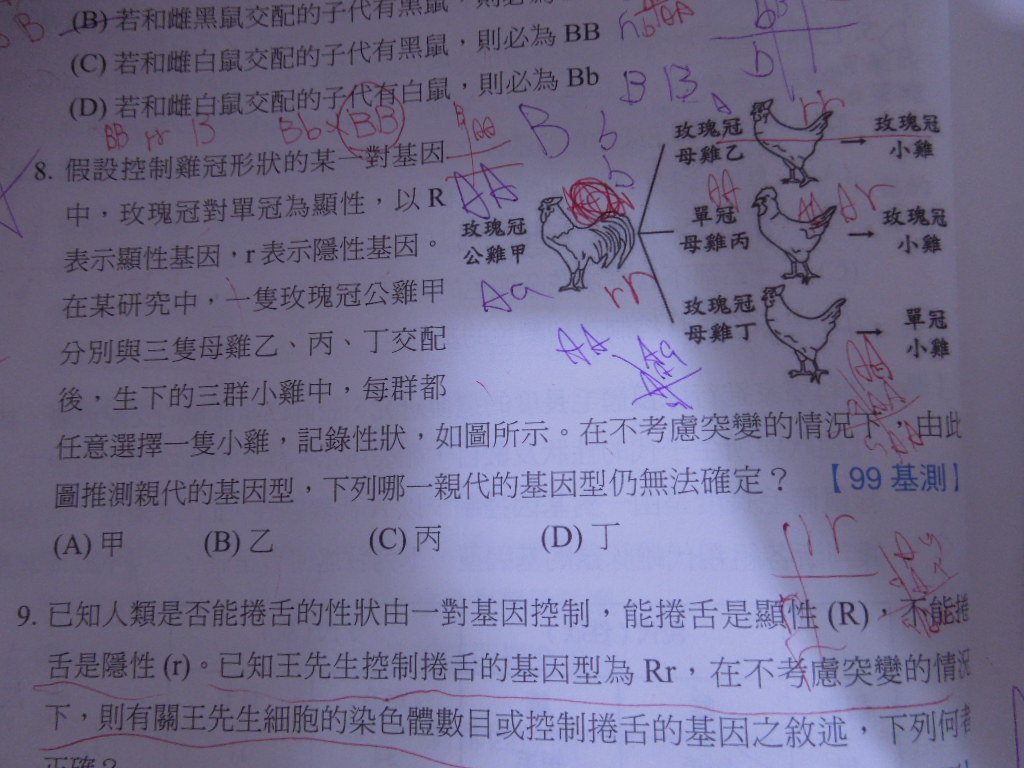 (B) 若和雌黑鼠交配的子代有黑鼠，則必為
(C) 若和雌白鼠交配的子代有黑鼠，則必為 BB
(D) 若和雌白鼠交配的子代有白鼠，則必為 Bb
BB rr B Bb × BB
B b
8. 假設控制雞冠形狀的某一對基因
中，玫瑰冠對單冠為顯性，以 R
表示顯性基因，r 表示隱性基因。
在某研究中，一隻玫瑰冠公雞甲
分別與三隻母雞乙、丙、丁交配
後，生下的三群小雞中，每群都
任意選擇一隻小雞，記錄性狀，如圖所示。在不考慮突變的情況下，由此
圖推測親代的基因型，下列哪一親代的基因型仍無法確定？ 【99 基測】
玫瑰冠
公雞甲
玫瑰冠
母雞乙
玫瑰冠
小雞
單冠
母雞丙
玫瑰冠
小雞
玫瑰冠
母雞丁
單冠
小雞
AA
Aa
rr
AA
(A) 甲 (B) 乙 (C) 丙 (D) 丁
9. 已知人類是否能捲舌的性狀由一對基因控制，能捲舌是顯性 (R)，不能捲
舌是隱性 (r)。已知王先生控制捲舌的基因型為 Rr，在不考慮突變的情況
下，則有關王先生細胞的染色體數目或控制捲舌的基因之敘述，下列何者
正確？